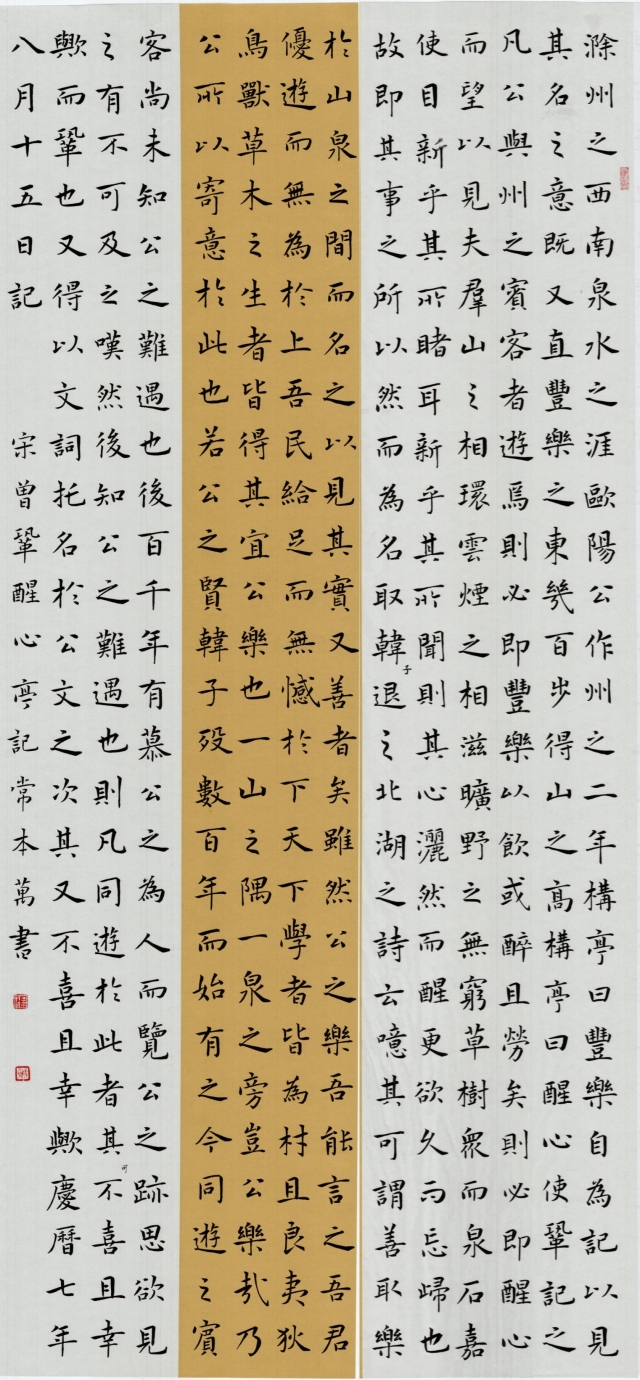 滁州之西南泉水之涯歐陽公作州之二年構亭曰豐樂自為記以見
其名之意既又直豐樂之東幾百步得山之高構亭曰醒心使鞏記之
凡公與州之賓客者遊焉則必即豐樂以飲或醉且勞矣則必即醒心
而望以見夫羣山之相環雲煙之相滋曠野之無窮草樹眾而泉石嘉
使目新乎其所睹耳新乎其所聞則其心灑然而醒更欲久而忘歸也
故即其事之所以然而為名取韓子退之北湖之詩云噫其可謂善取樂
於山泉之間而名之以見其實又善者矣雖然公之樂吾能言之吾君
優遊而無為於上吾民給足而無憾於下天下學者皆為材且良夷狄
鳥獸草木之生者皆得其宜公樂也一山之隅一泉之旁豈公樂哉乃
公所以寄意於此也若公之賢韓子歿數百年而始有之今同遊之賓
客尚未知公之難遇也後百千年有慕公之為人而覽公之跡思欲見
之有不可及之嘆然後知公之難遇也則凡同遊於此者其可不喜且幸
歟而鞏也又得以文詞托名於公文之次其又不喜且幸歟慶曆七年
八月十五日記 宋曾鞏醒心亭記常本萬書